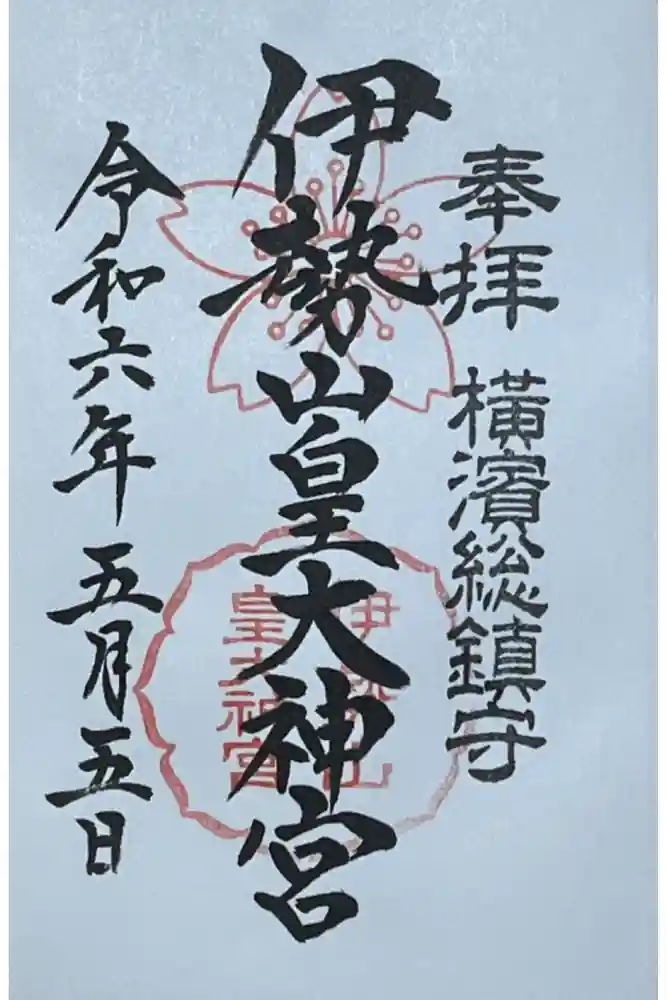 奉拝 横濱総鎮守
伊勢山皇大神宮
令和六年 五月五日
伊勢山
皇大神宮